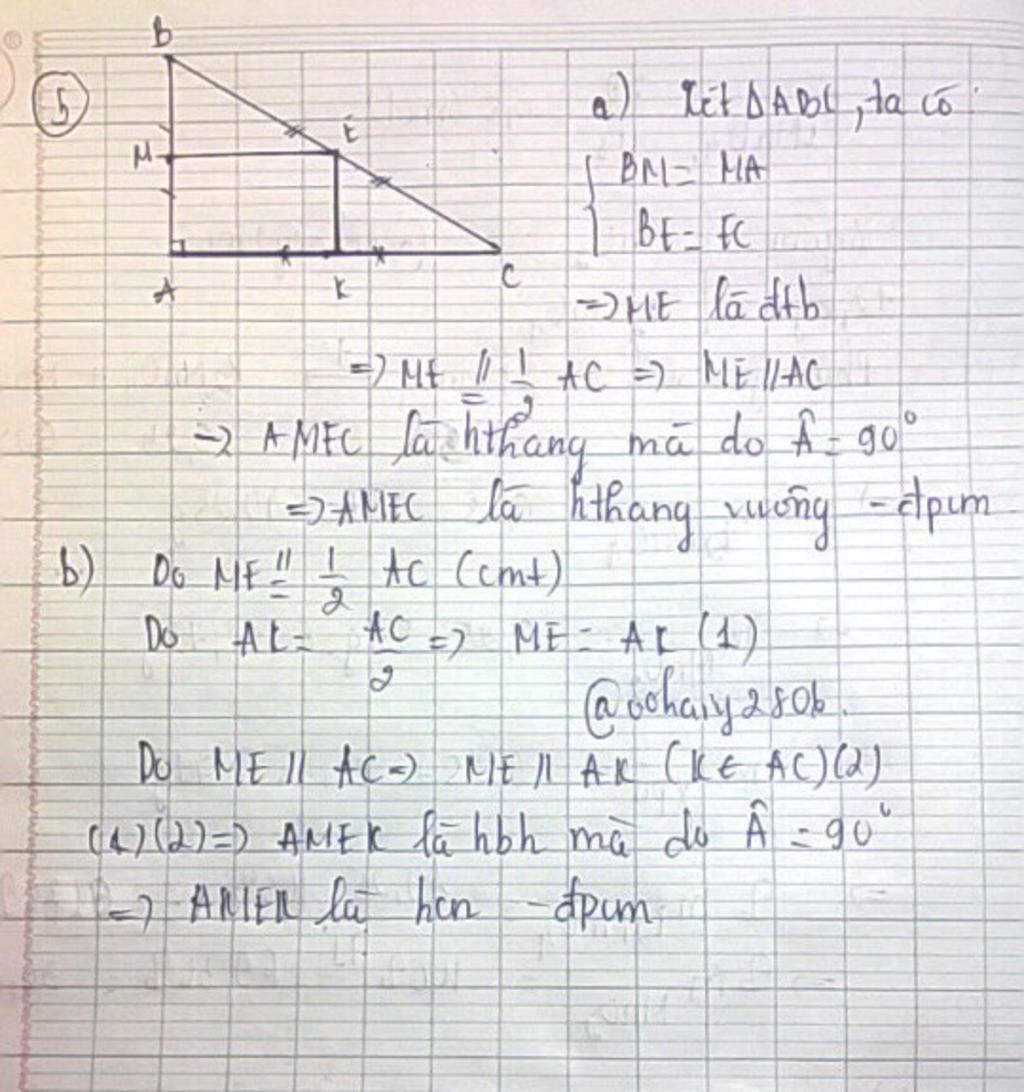 5
B
M
E
A
K
C
a) Xét ΔABC, ta có:
BM = MA
BE = EC
=> ME là đtb
=> ME //= 1/2 AC => ME // AC
=> AMEC là hthang mà do Â = 90°
=> AMEC là hthang vuông - đpcm
b) Do ME //= 1/2 AC (cmt)
Do AK = AC/2 => ME = AK (1)
Do ME // AC => ME // AK (K ∈ AC) (2)
(1)(2) => AMEK là hbh mà do Â = 90°
=> AMEK là hcn - đpcm